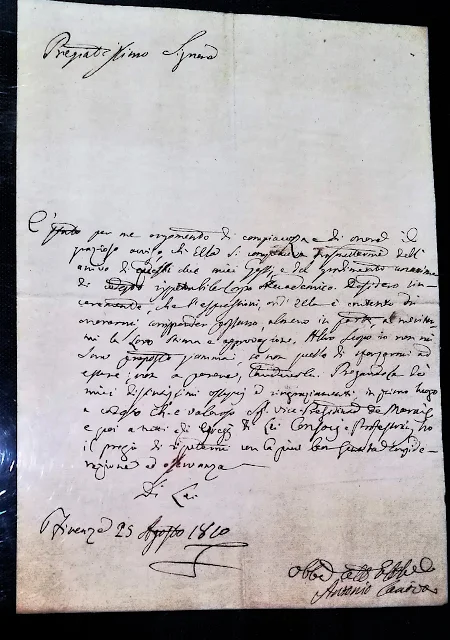 Pregiatissimo Signore
È stato per me argomento di compiacenza e di onore il
grazioso avviso, che Ella si compiacque trasmettermi dell'
arrivo di questi due miei Gessi, e del gradimento unanime
di rispettabile Corpo Accademico. Desidero sin
ceramente, che l'espressioni, ond'Ella è contento di
onorarmi, possano, almeno in parte, meritar
mi la Loro stima e approvazione. Altro scopo io non mi
sono proposto giammai, se non quello di sforzarmi
essere, non a parere, Pregandola dei
miei ossequj e ringraziamenti, in primo luogo
a codesto Ch. e valoroso Sig. Vice-Presidente de
e poi a tutti di Lei Consocj e Professori, ho
il pregio di ripetermi con la più ben sentita conside-
razione ed osservanza
Di Lei
Firenze 25 Agosto 1810
Antonio Canova